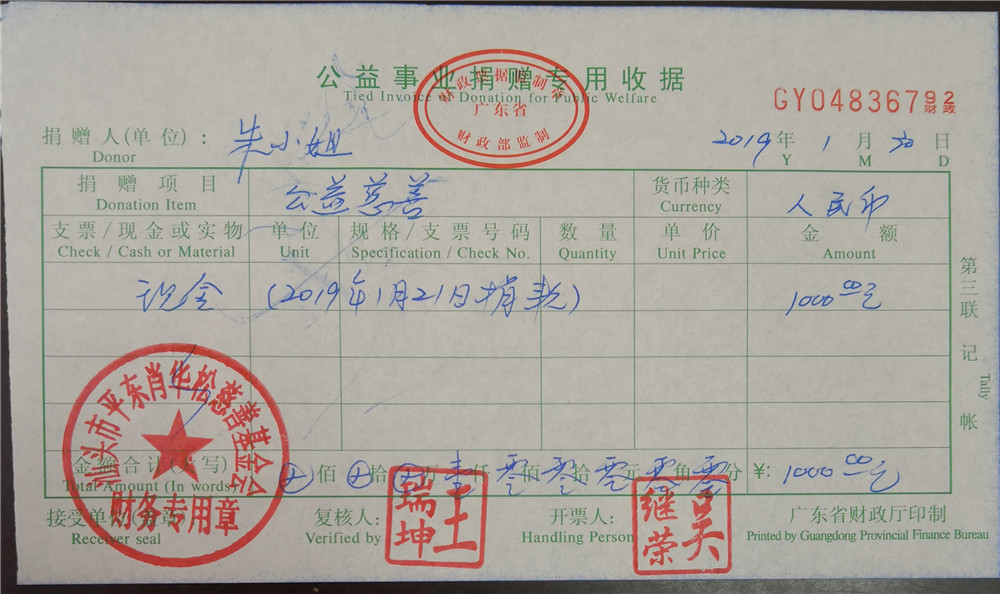 公益事业捐赠专用收据
Tied Invoice of Donation for Public Welfare
财政票据监制章
广东省
财政部监制
GY04836792
财政
捐赠人(单位): 朱小姐 2019年1月30日
Donor Y M D
捐赠项目 公益慈善 货币种类 人民币
Donation Item Currency
支票/现金或实物 单位 规格/支票号码 数量 单价 金额
Check / Cash or Material Unit Specification / Check No. Quantity Unit Price Amount
现金 (2019年1月21日捐款) 1000.00元
第三联 记帐
Tally
金额合计(大写) 佰 拾 万 壹仟 零佰 零拾 零元 零角 零分 ¥: 1000.00元
Total Amount (In words)
接受单位(盖章) 复核人: 开票人: 广东省财政厅印制
Receiver seal Verified by Handling Person Printed by Guangdong Provincial Finance Bureau
汕头市平东肖华松慈善基金会
财务专用章
王瑞坤
吴继荣